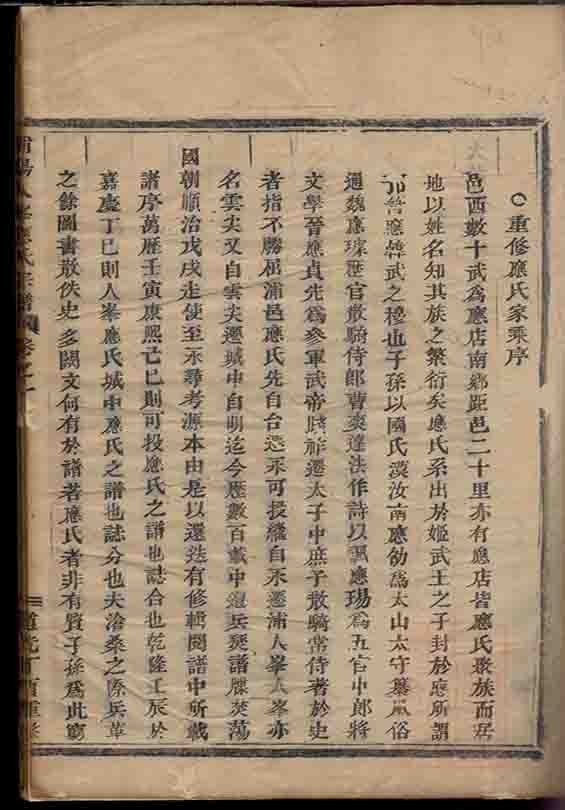 重修應氏家乘序
邑西數十武為應店南鄉距邑二十里亦有應店皆應氏聚族而居
地以姓名知其族之繁衍矣應氏系出於姬武王之子封於應所謂
晉應韓武之穆也子孫以國氏漢汝南應劭為太山太守纂風俗
通魏應璩歷官散騎侍郎曹爽違法作詩以諷應瑒為五官中郎將
文學晉應貞先為參軍武帝踐祚遷太子中庶子散騎常侍著於史
者指不勝屈浦邑應氏先自台遷永可投繼自永遷浦人峯人峯亦
名雲尖又自雲尖遷城中自明迄今歷數百載中遭兵燹譜牒焚蕩
國朝順治戊戌走使至永尋考源本由是以還迭有修輯閱譜中所載
諸序萬歷壬寅康熙己巳則可投應氏之譜也誌合也乾隆壬辰於
嘉慶丁巳則人峯應氏城中應氏之譜也誌分也夫滄桑之際兵革
之餘圖書散佚史多闕文何有於譜若應氏者非有賢子孫為此窮
陽人峯應氏宗譜 卷之一
道光丁酉重修